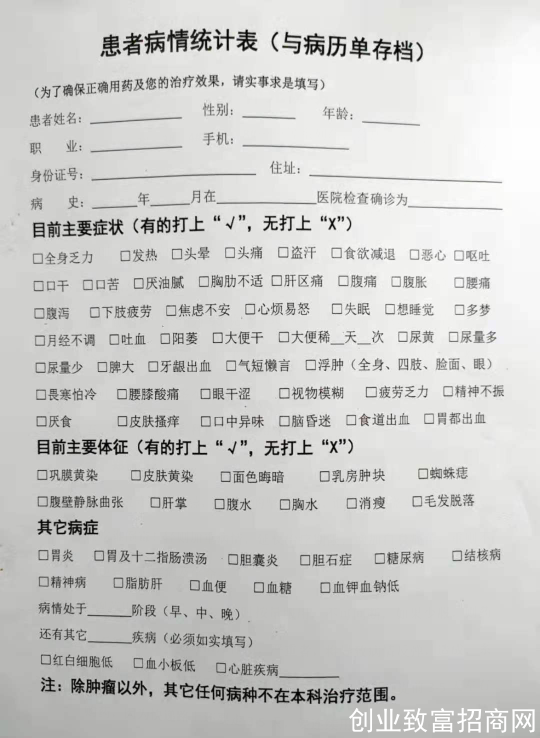 患者病情统计表（与病历单存档）
（为了确保正确用药及您的治疗效果，请实事求是填写）
患者姓名：________ 性别：________ 年龄：________
职 业：________ 手机：________
身份证号：________ 住址：________
病 史：____年____月在________医院检查确诊为________
目前主要症状（有的打上“√”，无打上“X”）
□全身乏力 □发热 □头晕 □头痛 □盗汗 □食欲减退 □恶心 □呕吐
□口干 □口苦 □厌油腻 □胸肋不适 □肝区痛 □腹痛 □腹胀 □腰痛
□腹泻 □下肢疲劳 □焦虑不安 □心烦易怒 □失眠 □想睡觉 □多梦
□月经不调 □吐血 □阳萎 □大便干 □大便稀__天__次 □尿黄 □尿量多
□尿量少 □脾大 □牙龈出血 □气短懒言 □浮肿（全身、四肢、脸面、眼）
□畏寒怕冷 □腰膝酸痛 □眼干涩 □视物模糊 □疲劳乏力 □精神不振
□厌食 □皮肤搔痒 □口中异味 □脑昏迷 □食道出血 □胃都出血
目前主要体征（有的打上“√”，无打上“X”）
□巩膜黄染 □皮肤黄染 □面色晦暗 □乳房肿块 □蜘蛛痣
□腹壁静脉曲张 □肝掌 □腹水 □胸水 □消瘦 □毛发脱落
其它病症
□胃炎 □胃及十二指肠溃汤 □胆囊炎 □胆石症 □糖尿病 □结核病
□精神病 □脂肪肝 □血便 □血糖 □血钾血钠低
病情处于______阶段（早、中、晚）
还有其它______疾病（必须如实填写）
□红白细胞低 □血小板低 □心脏疾病________
注：除肿瘤以外，其它任何病种不在本科治疗范围。
创业致富招商网